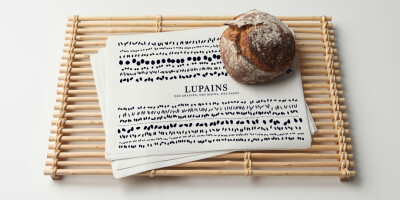 LUPAINS
DES GRAINES, DES MAINS, DES PAINS